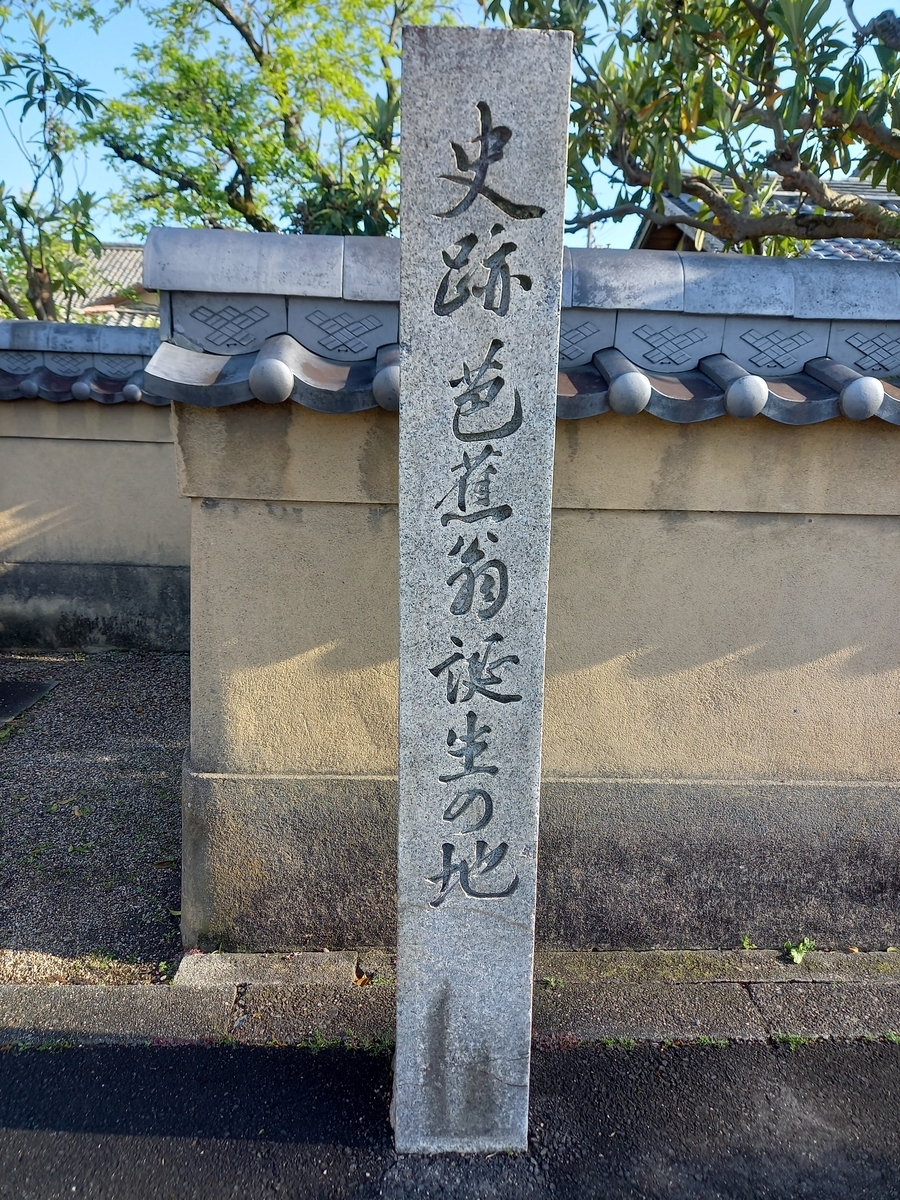 史跡 芭蕉翁誕生の地